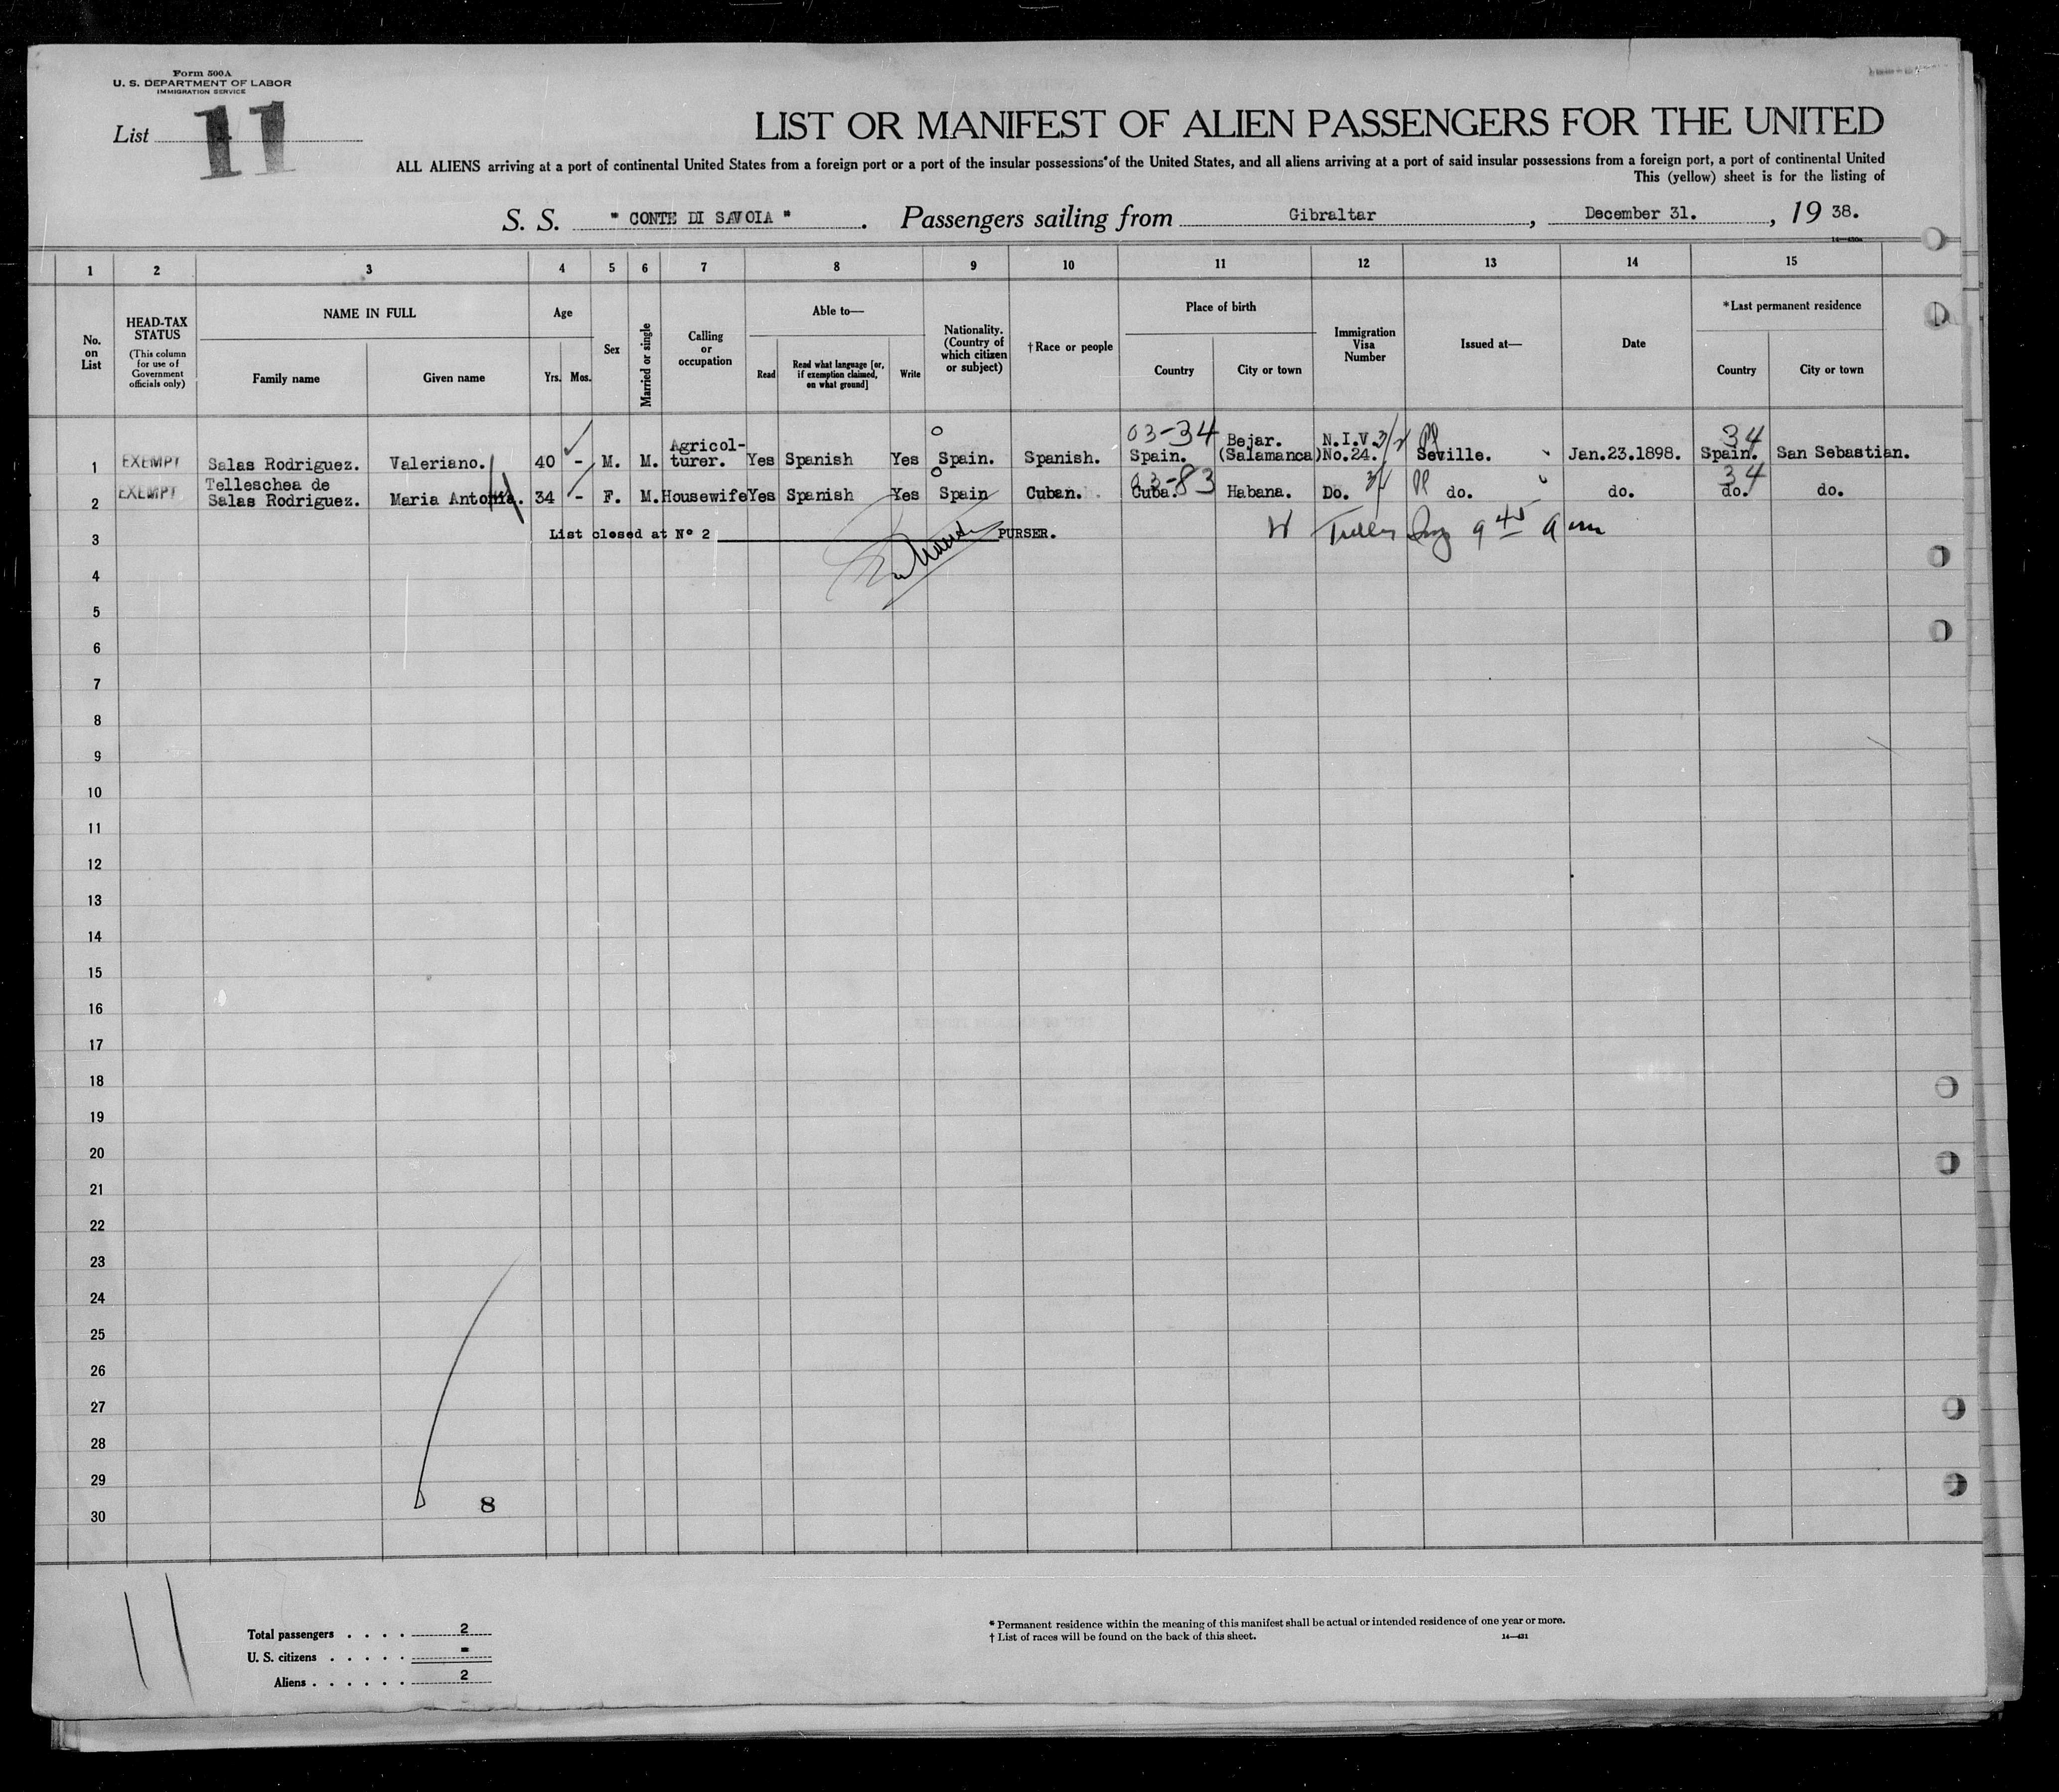 Form 500A
U. S. DEPARTMENT OF LABOR
IMMIGRATION SERVICE
List 11
LIST OR MANIFEST OF ALIEN PASSENGERS FOR THE UNITED
ALL ALIENS arriving at a port of continental United States from a foreign port or a port of the insular possessions of the United States, and all aliens arriving at a port of said insular possessions from a foreign port, a port of continental United
This (yellow) sheet is for the listing of
S. S. " CONTE DI SAVOIA " . Passengers sailing from Gibraltar , December 31. , 19 38.
14—430a
1 2 3 4 5 6 7 8 9 10 11 12 13 14 15
No. on List
HEAD-TAX STATUS
(This column for use of Government officials only)
NAME IN FULL
Family name
Given name
Age
Yrs. Mos.
Sex
Married or single
Calling or occupation
Able to—
Read
Read what language [or, if exemption claimed, on what ground]
Write
Nationality. (Country of which citizen or subject)
†Race or people
Place of birth
Country
City or town
Immigration Visa Number
Issued at—
Date
*Last permanent residence
Country
City or town
03-34 34
1 EXEMPT Salas Rodriguez. Valeriano. 40 - M. M. Agricol-turer. Yes Spanish Yes Spain. Spanish. Spain. Bejar. (Salamanca) N.I.V. No.24. Seville. Jan.23.1898. Spain. San Sebastian.
03-83 34
2 EXEMPT Telleschea de Salas Rodriguez. Maria Antonia. 34 - F. M. Housewife Yes Spanish Yes Spain Cuban. Cuba. Habana. Do. do. do. do. do.
3 List closed at Nº 2 PURSER.
4
5
6
7
8
9
10
11
12
13
14
15
16
17
18
19
20
21
22
23
24
25
26
27
28
29
8
30
11
Total passengers . . . . 2
U. S. citizens . . . . . -
Aliens . . . . . . 2
* Permanent residence within the meaning of this manifest shall be actual or intended residence of one year or more.
† List of races will be found on the back of this sheet.
14—431